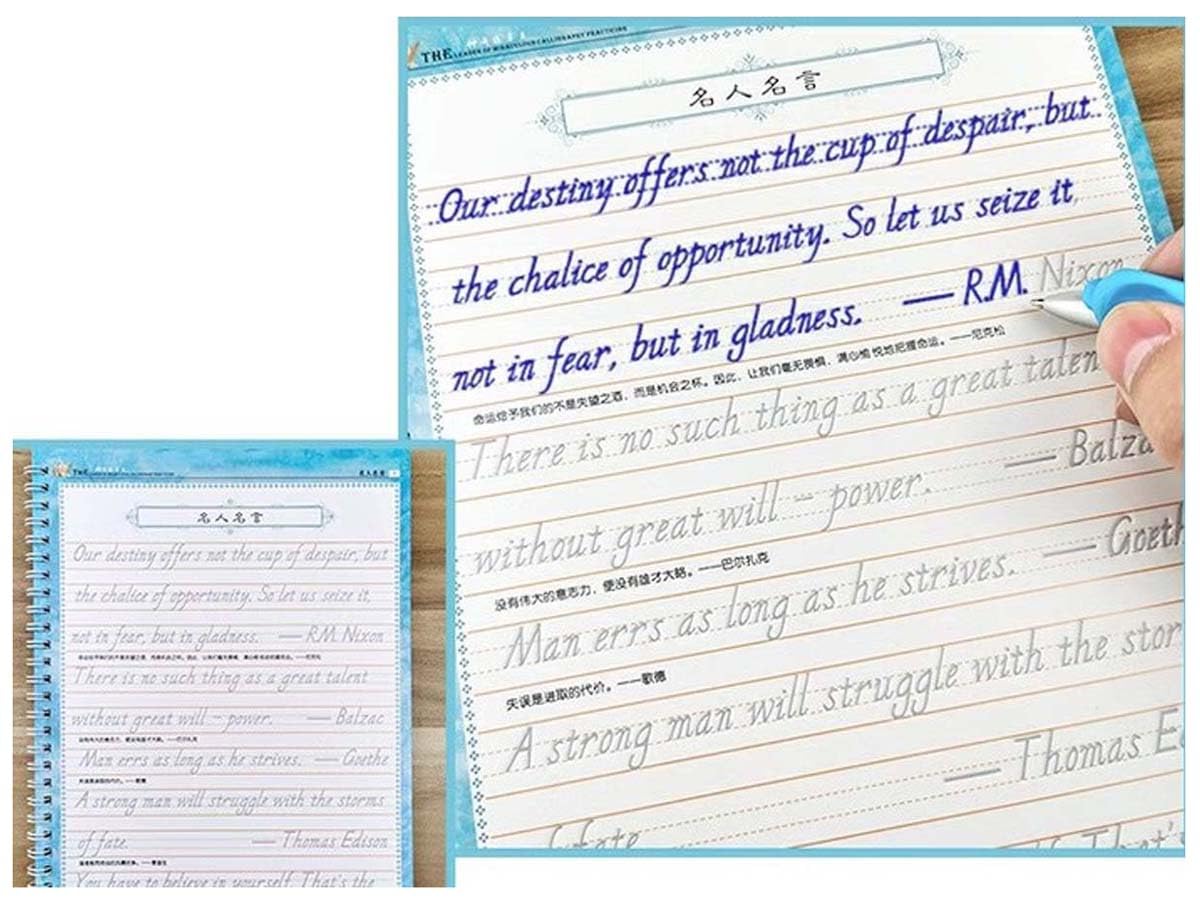 THE LEADER OF MIRACULOUS CALLIGRAPHY PRACTICING
名人名言
Our destiny offers not the cup of despair, but
the chalice of opportunity. So let us seize it,
not in fear, but in gladness. — R.M. Nixon
命运给予我们的不是失望之酒，而是机会之杯。因此，让我们毫无畏惧，满心愉悦地把握命运。——尼克松
There is no such thing as a great talen
without great will - power. — Balzac
没有伟大的意志力，便没有雄才大略。——巴尔扎克
Man errs as long as he strives. — Goeth
失误是进取的代价。——歌德
A strong man will struggle with the stor
— Thomas E
of fate.
That's
THE
名人名言
名人名言
Our destiny offers not the cup of despair, but
the chalice of opportunity. So let us seize it,
not in fear, but in gladness. — R.M. Nixon
命运给予我们的不是失望之酒，而是机会之杯。因此，让我们毫无畏惧，满心愉悦地把握命运。——尼克松
There is no such thing as a great talent
without great will - power. — Balzac
没有伟大的意志力，便没有雄才大略。——巴尔扎克
Man errs as long as he strives. — Goethe
失误是进取的代价。——歌德
A strong man will struggle with the storms
of fate. — Thomas Edison
You have to believe in yourself. That's the